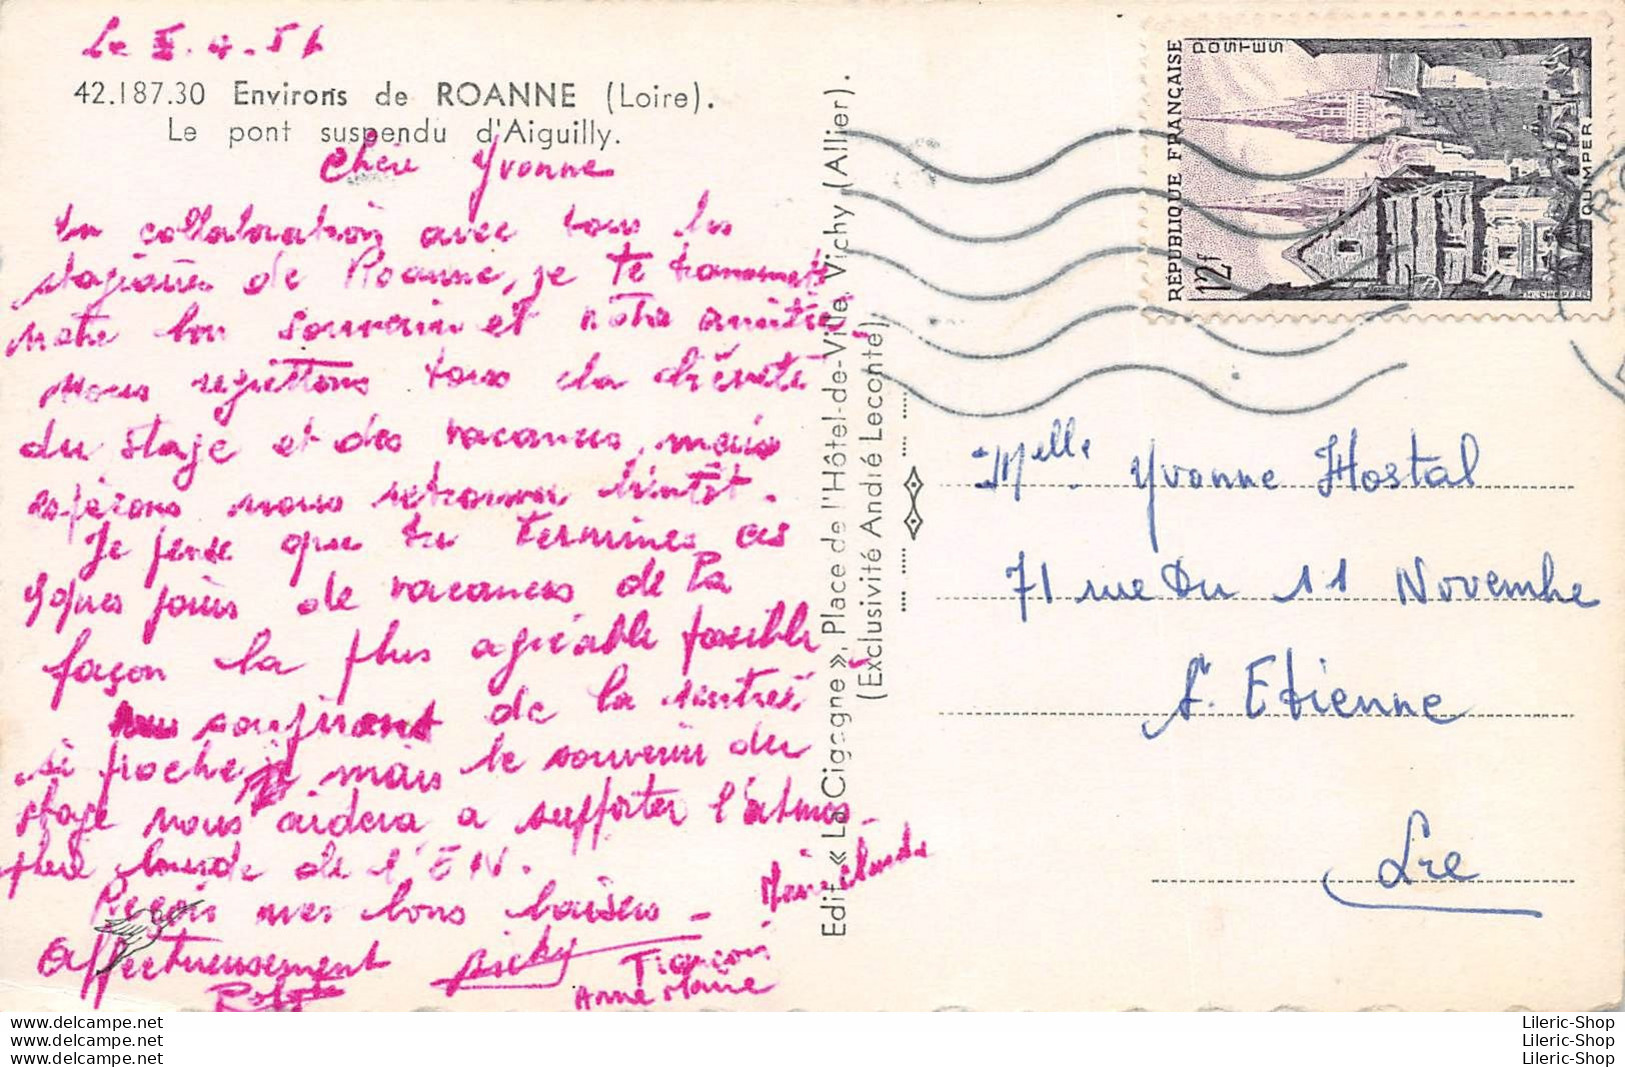 42.187.30 Environs de ROANNE (Loire).
Le pont suspendu d'Aiguilly.
Chère Yvonne
En collaboration avec tous les
stagiaires de Roanne, je te transmets
notre bon souvenir et notre amitié.
Nous regrettons tous la brièveté
du stage et des vacances, mais
espérons nous retrouver bientôt.
Je pense que tu termines ces
qques jours de vacances de la
façon la plus agréable possible
soupirant de la rentrée
si proche mais le souvenir du
stage nous aidera a supporter l'atmos-
phère lourde de l'EN.
Reçois mes bons baisers -
Marie Claude
Affectueusement
Françoise
Anne Marie
Edit. « La Cigogne », Place de l'Hôtel-de-Ville, Vichy (Allier).
(Exclusivité André Leconte)
RÉPUBLIQUE FRANÇAISE
POSTES
12f
QUIMPER
Melle Yvonne Hostal
71 rue Du 11 Novembre
St. Etienne
Lre
www.delcampe.net
www.delcampe.net
www.delcampe.net
Lileric-Shop
Lileric-Shop
Lileric-Shop